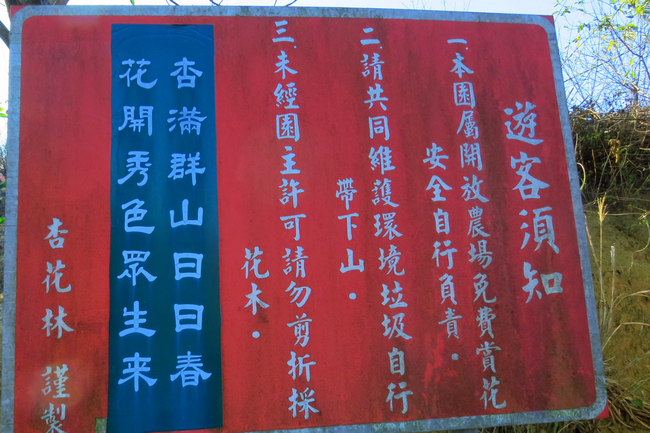 遊客須知
一.本園屬開放農場免費賞花
安全自行負責.
二.請共同維護環境垃圾自行
帶下山.
三.未經園主許可請勿剪折採
花木.
杏滿群山日日春
花開秀色眾生来
杏花林 謹製